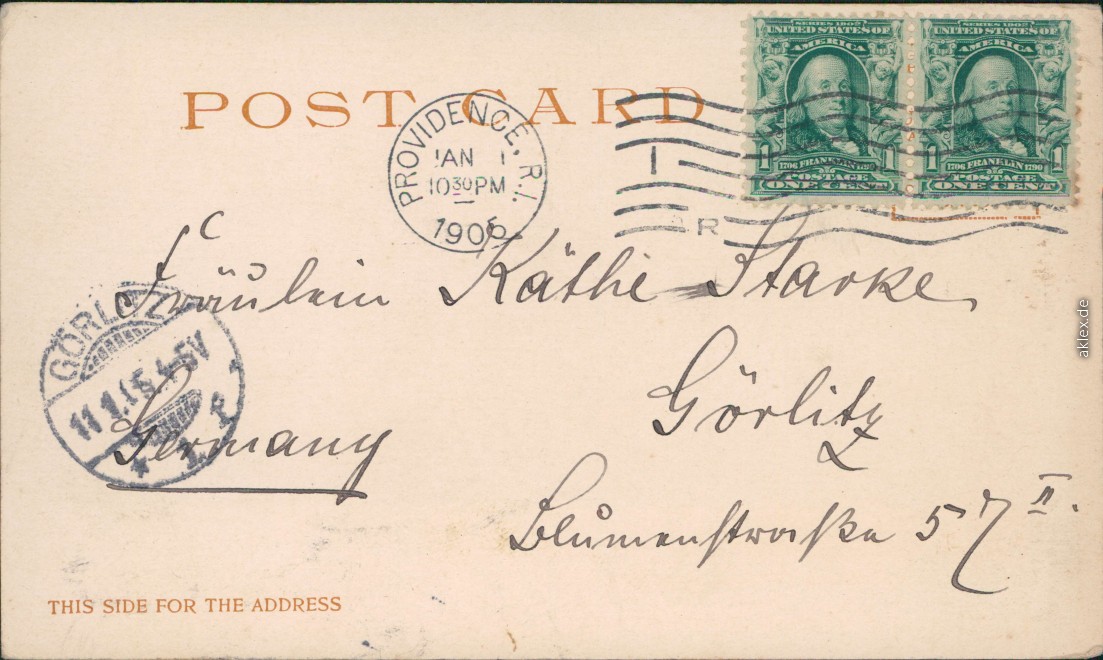 POST CARD
SERIES 1902 SERIES 1902
UNITED STATES OF UNITED STATES OF
AMERICA AMERICA
1 1706 FRANKLIN 1790 1 1 1706 FRANKLIN 1790 1
POSTAGE POSTAGE
ONE CENT ONE CENT
PROVIDENCE, R.I.
JAN 1
10 30 PM
1905
1
R
Fräulein Käthe Starke
GÖRLITZ
11.1.05.4-5V
* 1.
Görlitz
Germany
Blumenstraße 57 II.
THIS SIDE FOR THE ADDRESS
aklex.de